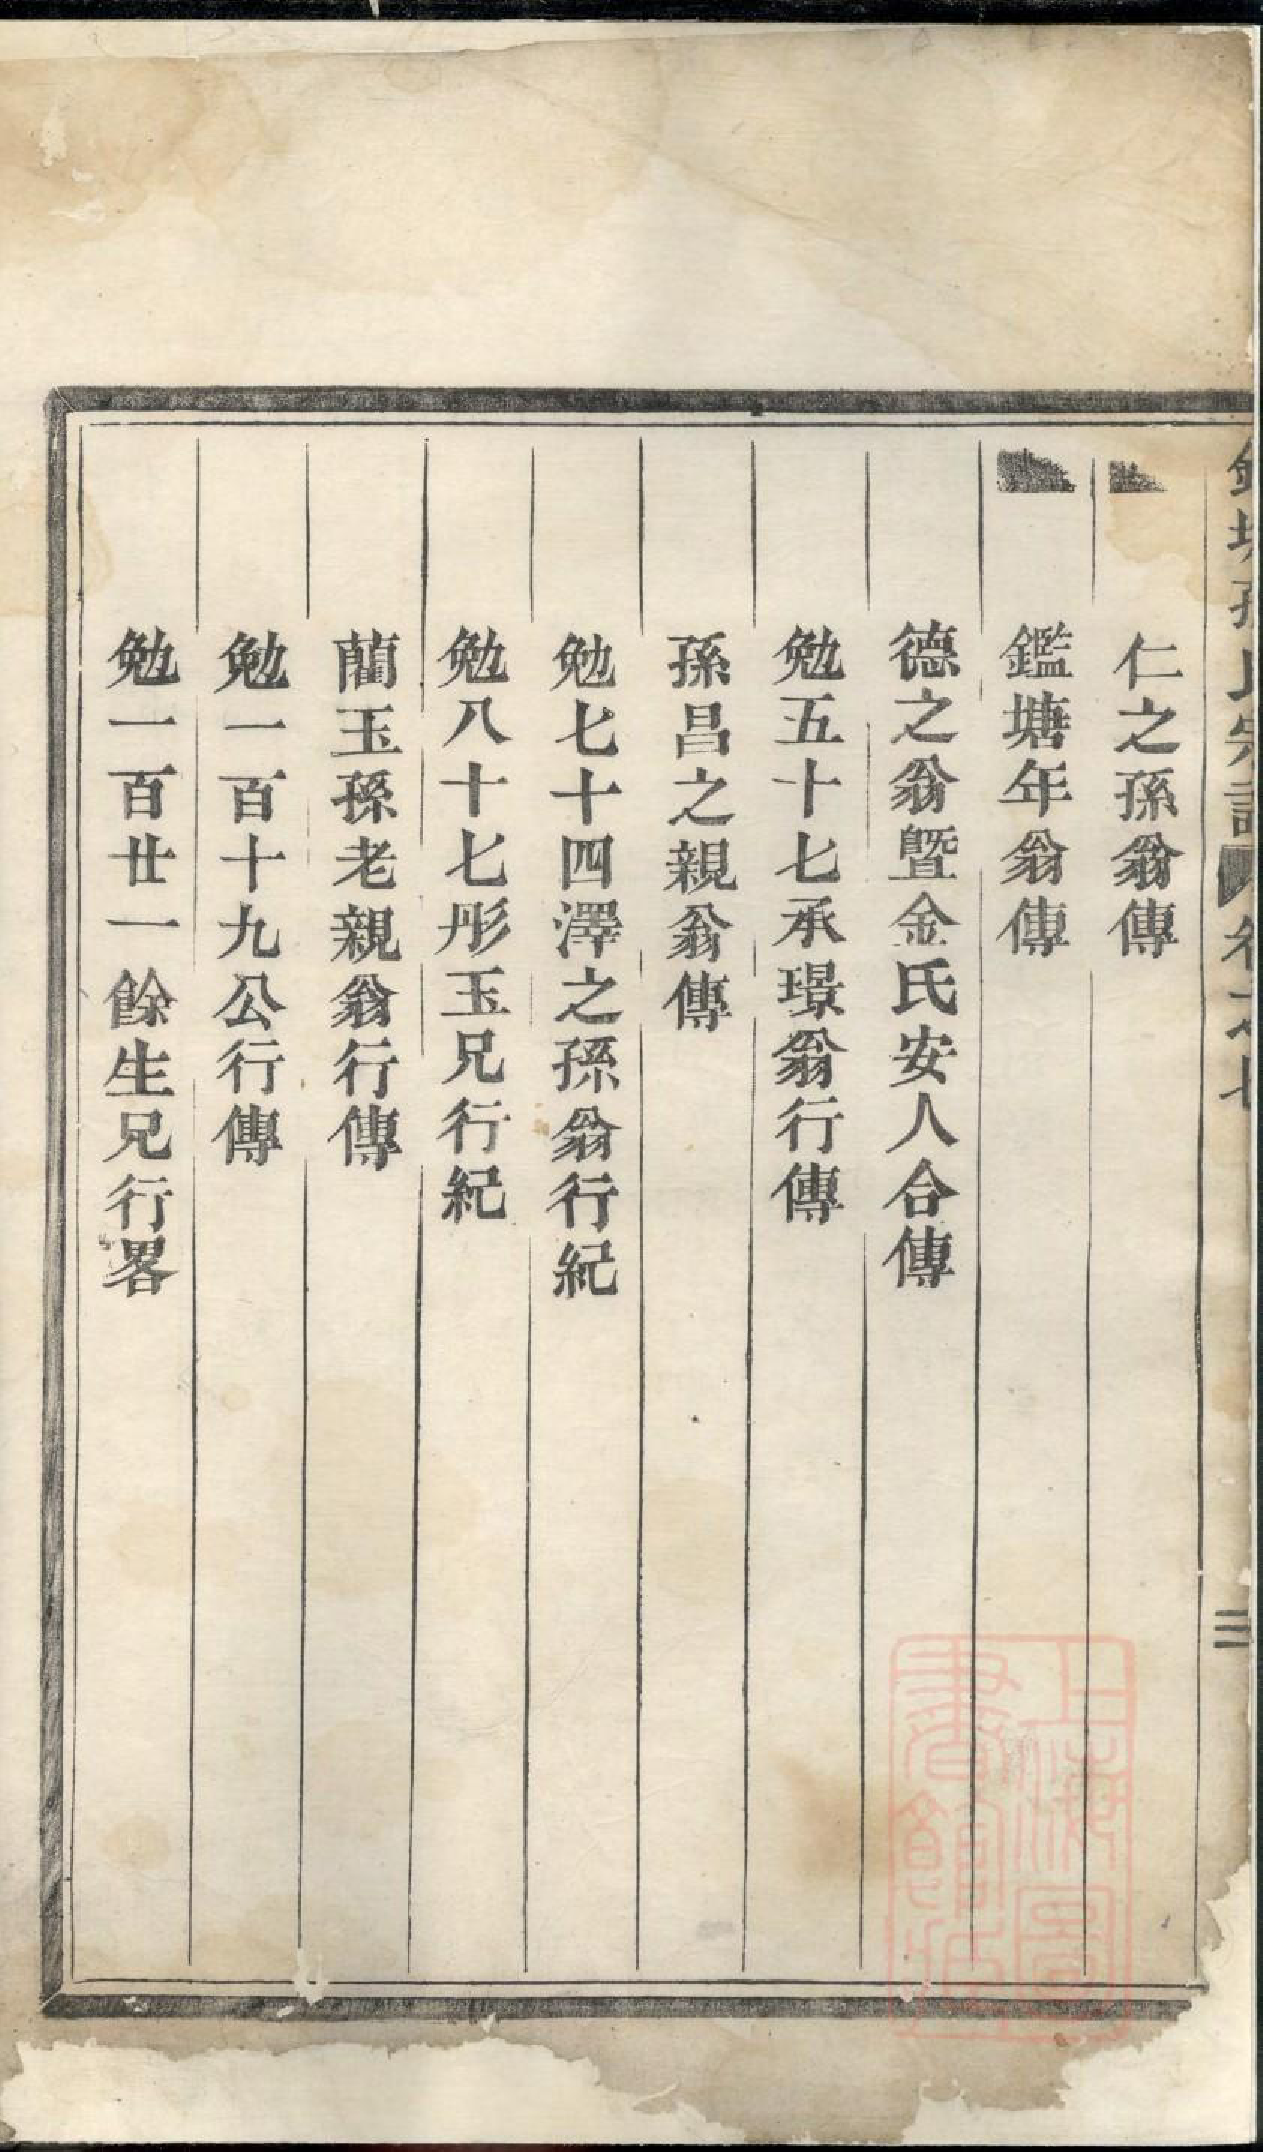 仁之孫翁傳
鑑塘年翁傳
德之翁暨金氏安人合傳
勉五十七承璟翁行傳
孫昌之親翁傳
勉七十四澤之孫翁行紀
勉八十七彤玉兄行紀
藺玉孫老親翁行傳
勉一百十九公行傳
勉一百廿一餘生兄行畧
上海圖書館藏